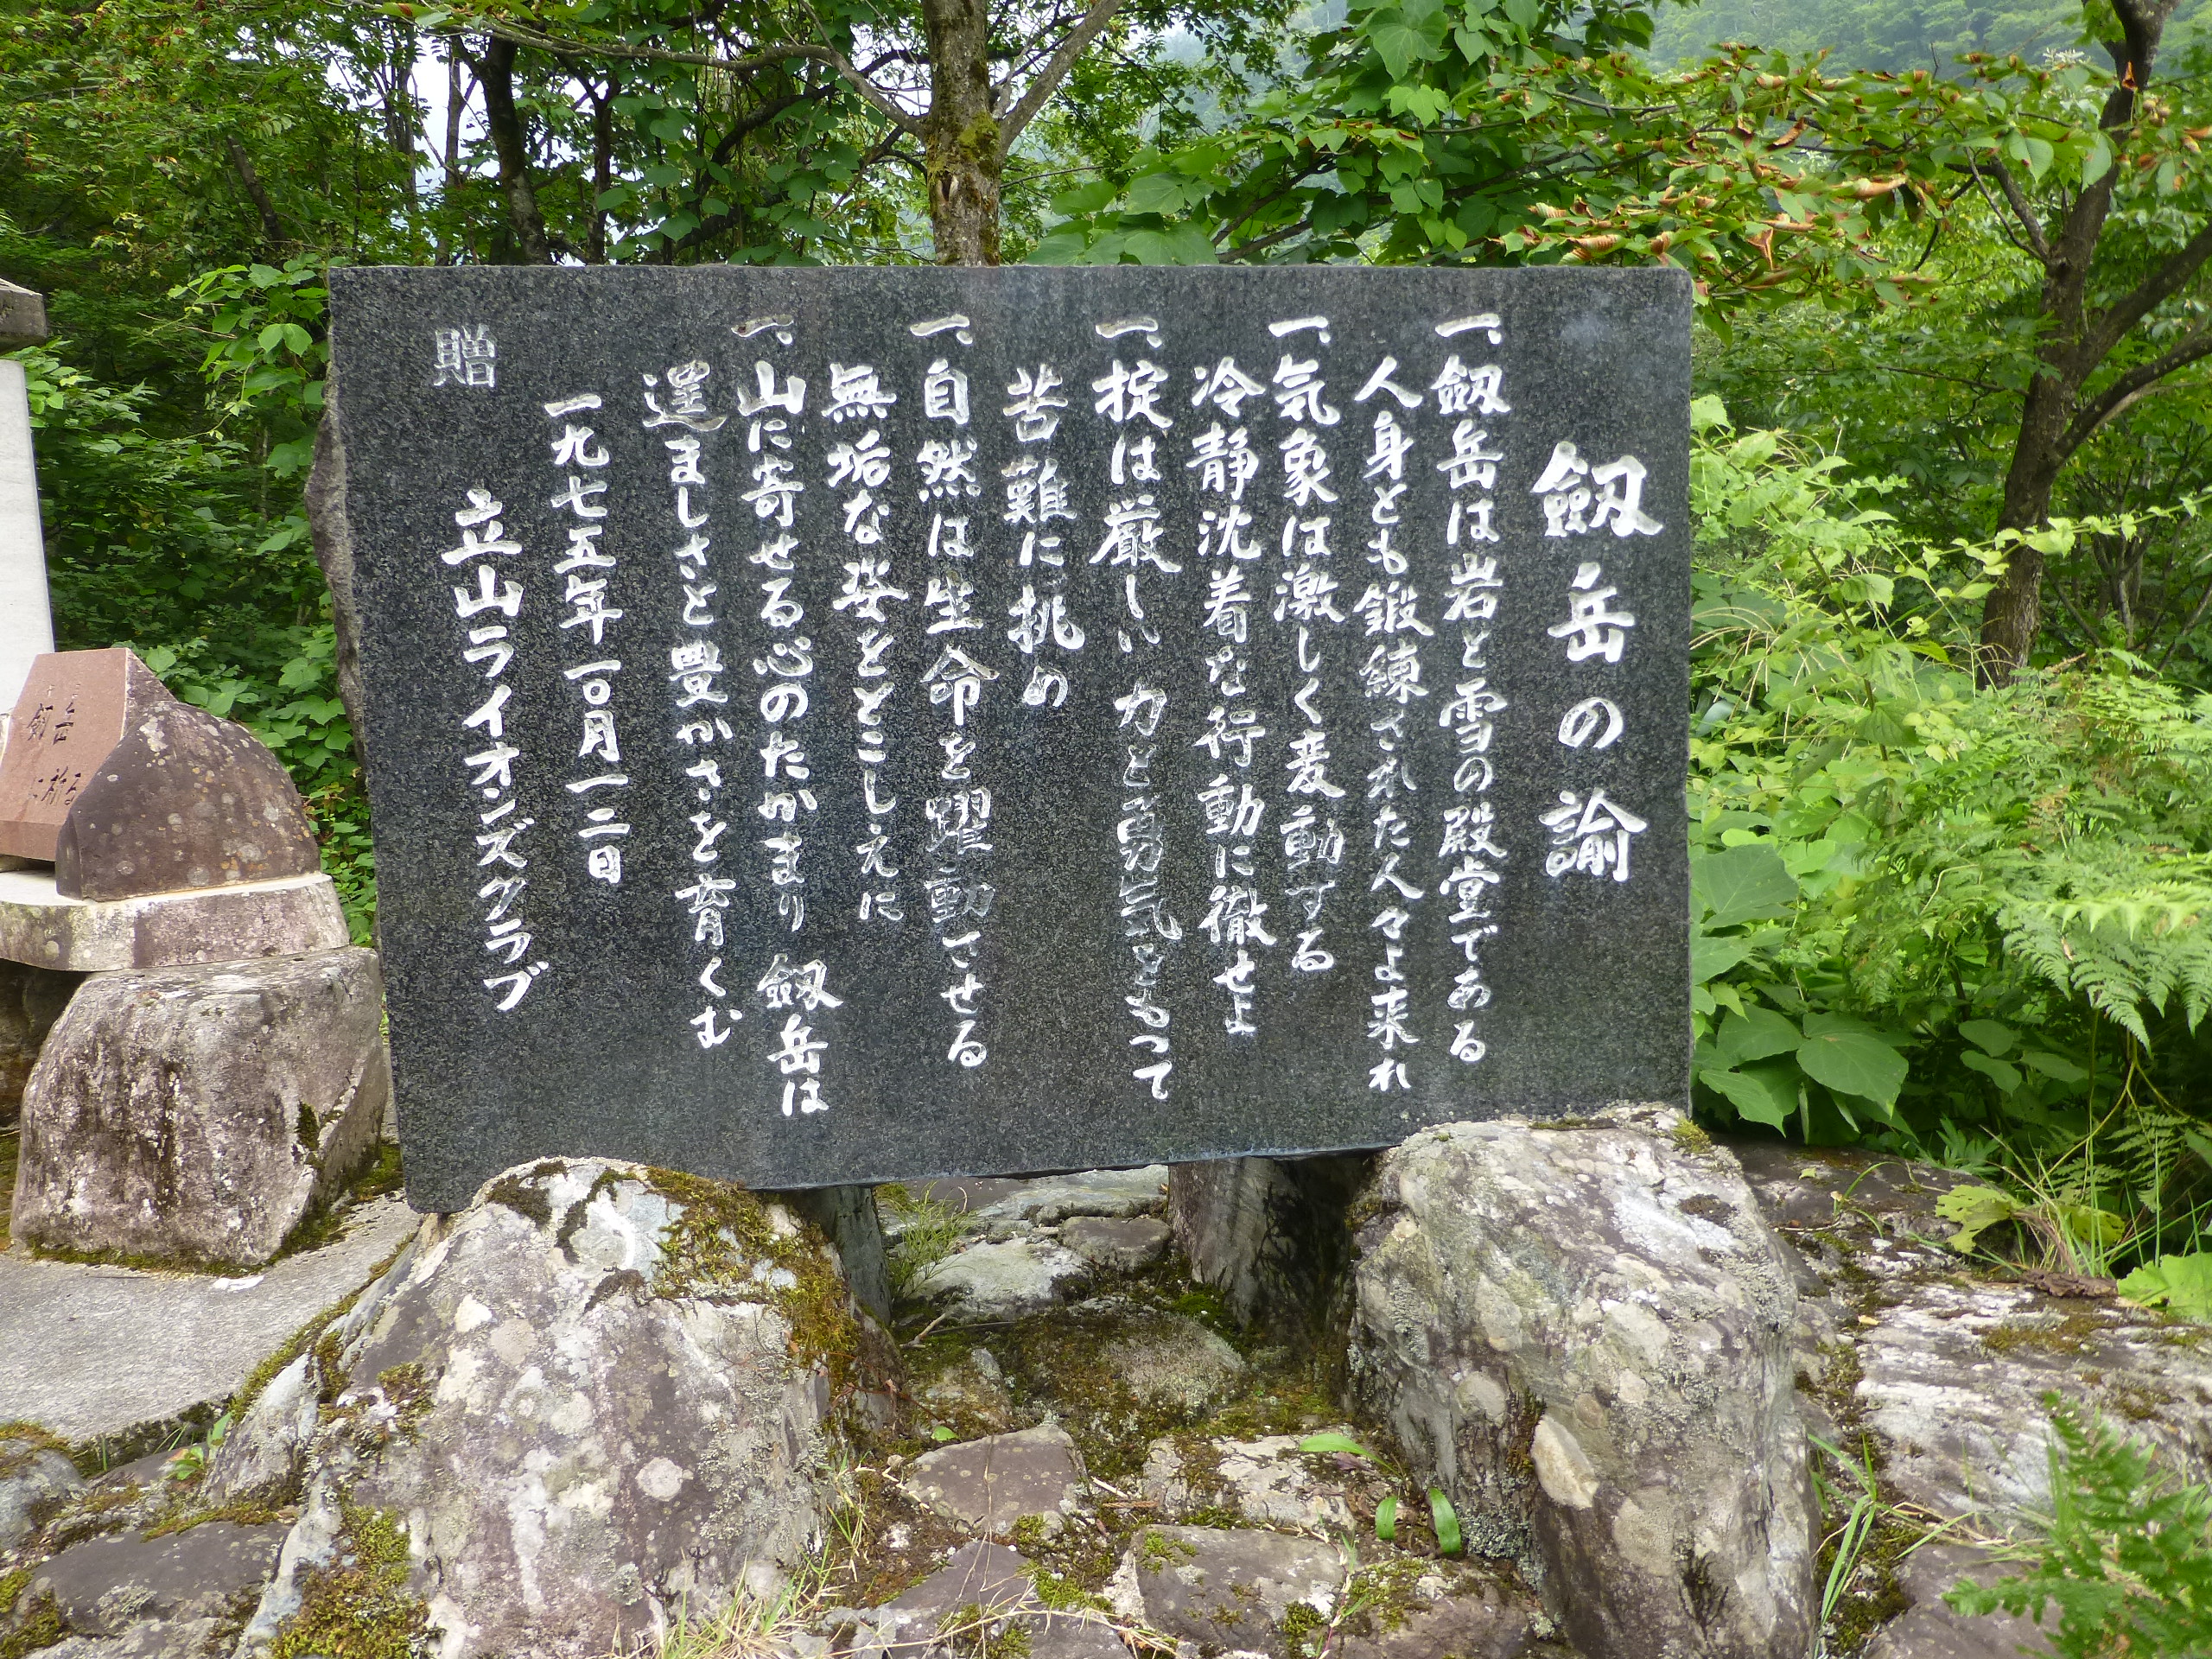 劔岳の諭
一、劔岳は岩と雪の殿堂である
人身とも鍛練された人々よ来れ
一、気象は激しく変動する
冷静沈着な行動に徹せよ
一、掟は厳しい 力と勇気をもって
苦難に挑め
一、自然は生命を躍動させる
無垢な姿をとこしえに
一、山に寄せる心のたかまり 劔岳は
逞ましさと豊かさを育くむ
一九七五年一〇月一二日
贈 立山ライオンズクラブ
岳
劔
に祈る